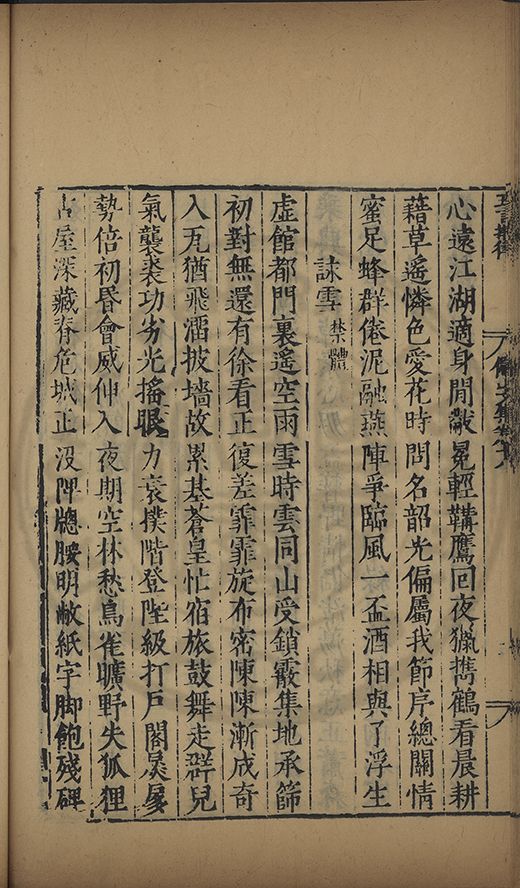 五言排律
心遠江湖適身閒黻冕輕鞲鷹回夜獵攜鶴看晨耕
藉草遙憐色愛花時問名韶光偏屬我節序總關情
蜜足蜂群倦泥融燕陣爭臨風一盃酒相與了浮生
詠雪 禁體
虛館都門裏遙空雨雪時雲同山受鎖霰集地承篩
初對無還有徐看正復差霏霏旋布密陳陳漸成奇
入瓦猶飛霤披墻故累基蒼皇忙宿旅鼓舞走群兒
氣襲裘功劣光搖眼力衰撲階登陛級打戶閣扊扅
勢倍初昏會威伸入夜期空林愁鳥雀曠野失狐狸
古屋深藏脊危城正沒陴牕腰明敝紙字脚飽殘碑